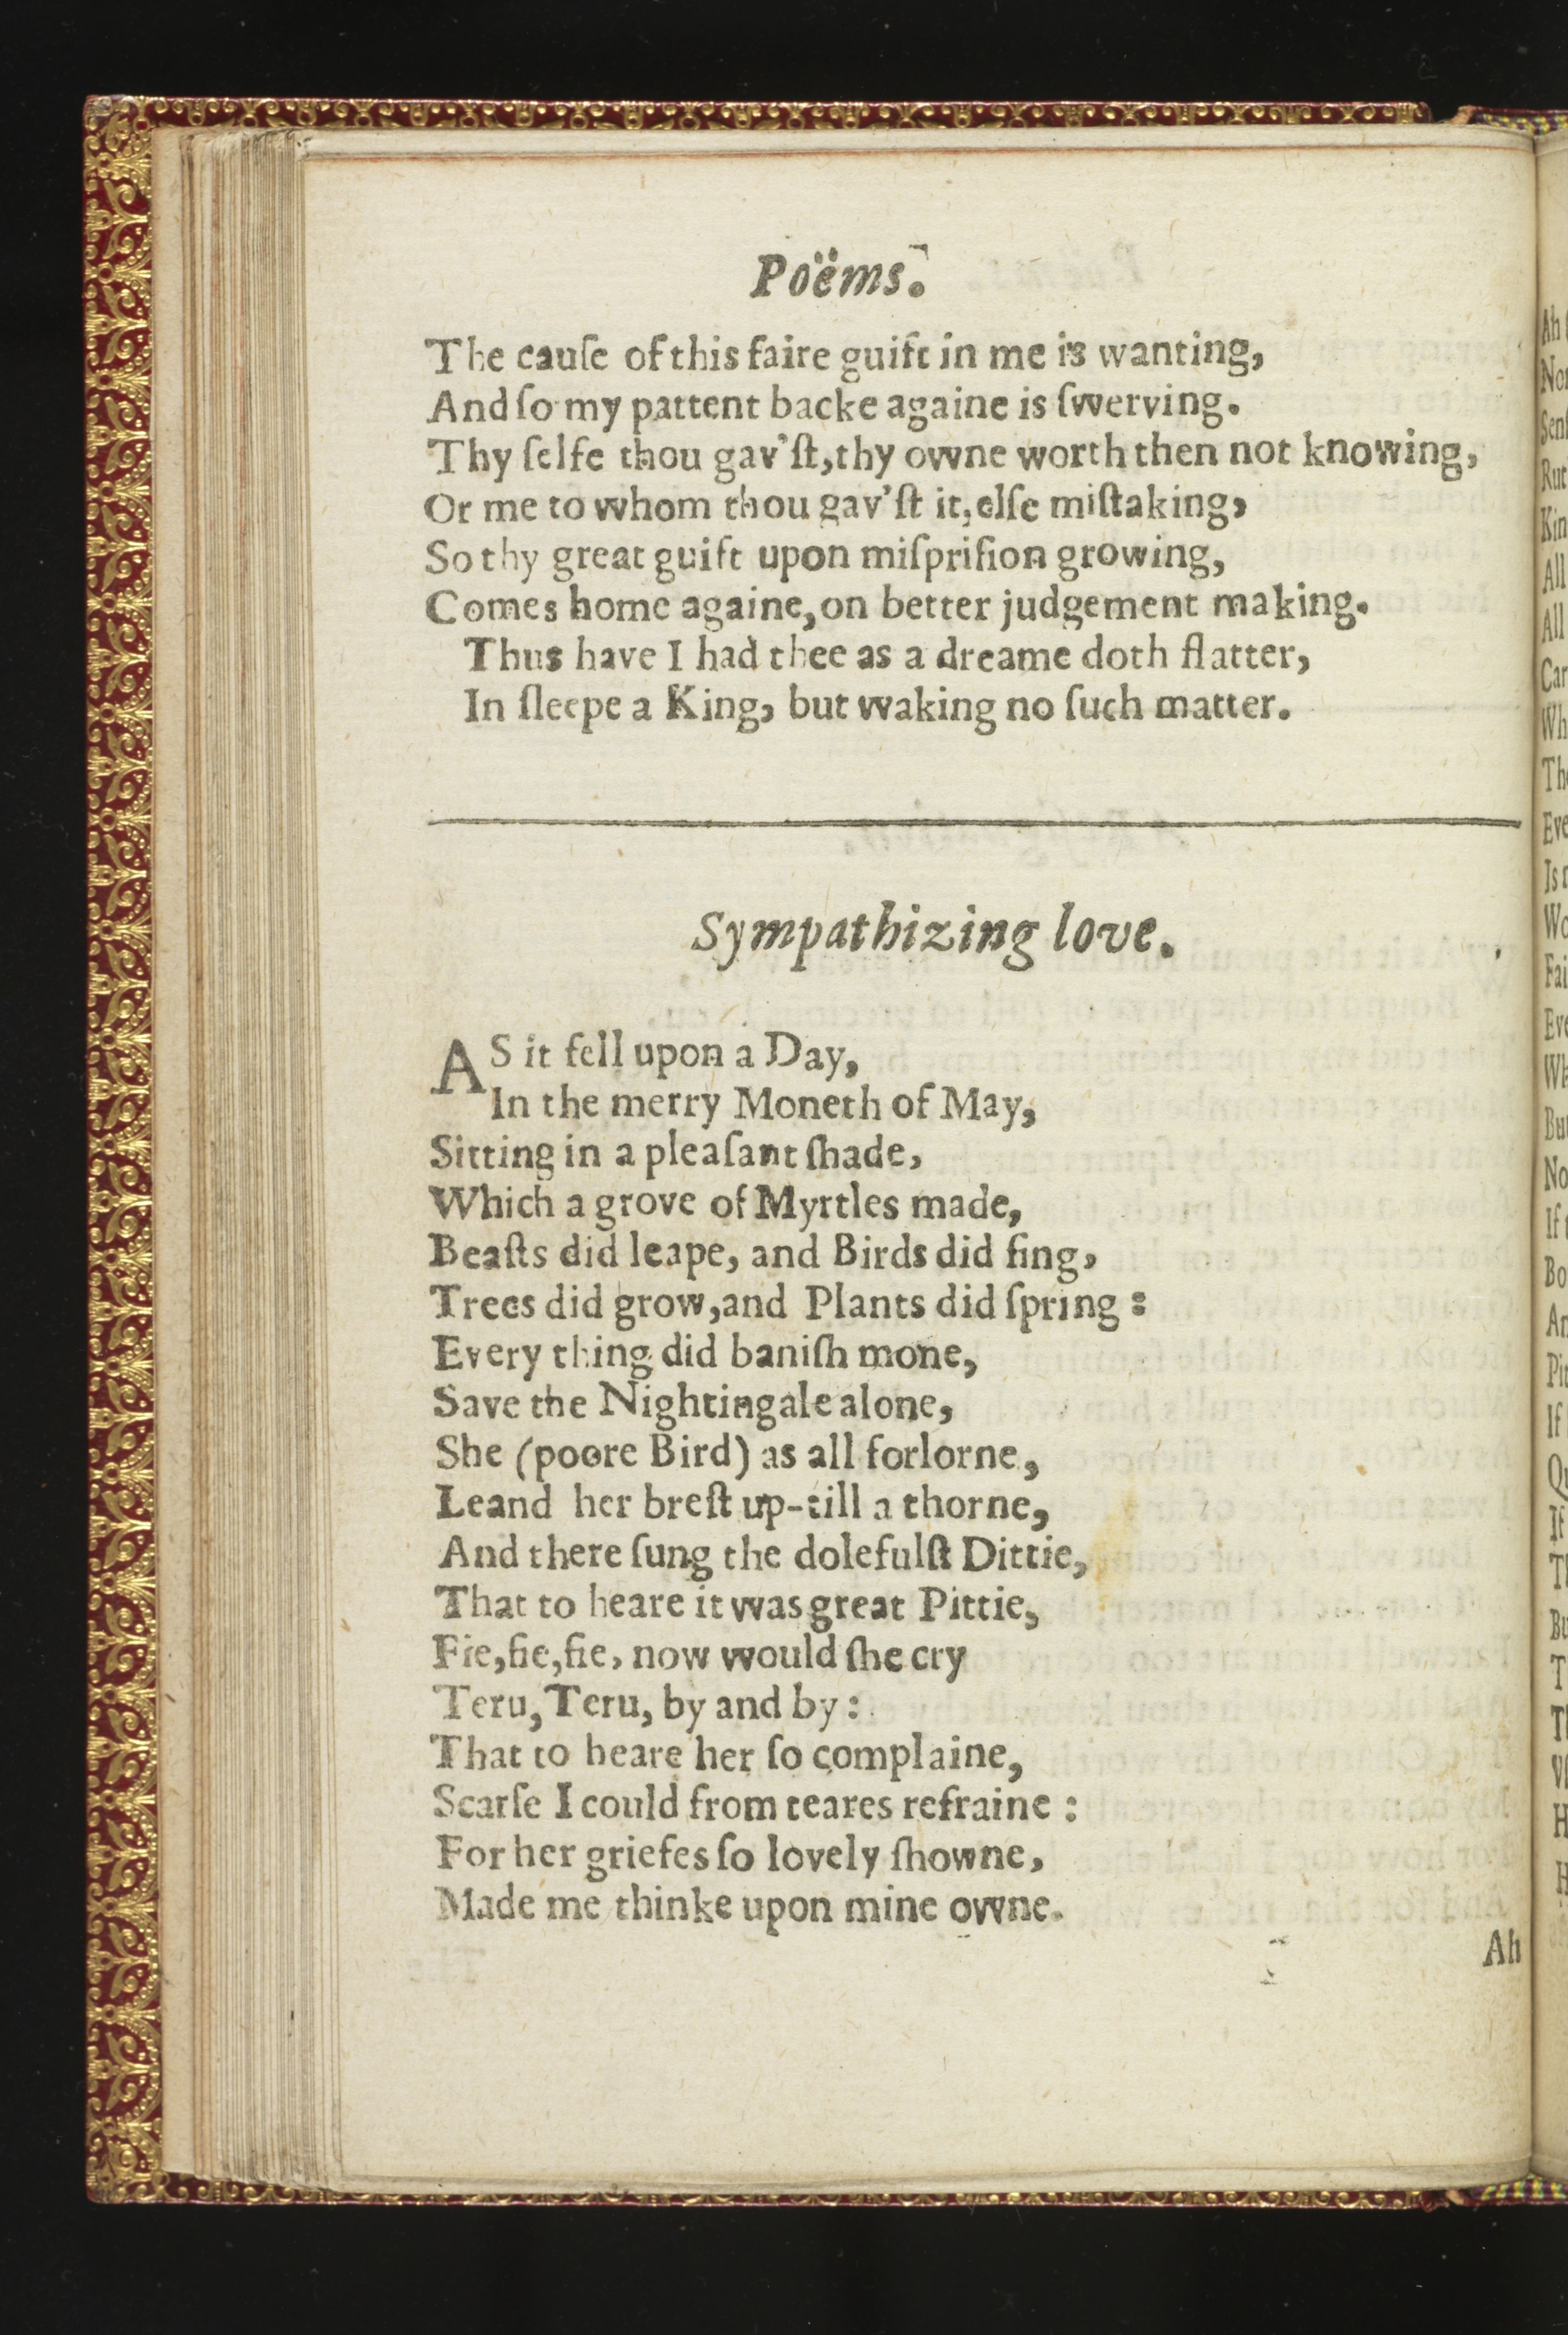 Poëms.
The cauſe of this faire guift in me is wanting,
And ſo my pattent backe againe is ſwerving.
Thy ſelfe thou gav'ſt, thy owne worth then not knowing,
Or me to whom thou gav'ſt it, elſe miſtaking,
So thy great guift upon miſpriſion growing,
Comes home againe, on better judgement making.
Thus have I had thee as a dreame doth flatter,
In ſleepe a King, but waking no ſuch matter.
Sympathizing love.
AS it fell upon a Day,
In the merry Moneth of May,
Sitting in a pleaſant ſhade,
Which a grove of Myrtles made,
Beaſts did leape, and Birds did ſing,
Trees did grow, and Plants did ſpring:
Every thing did baniſh mone,
Save the Nightingale alone,
She (poore Bird) as all forlorne,
Leand her breſt up-till a thorne,
And there ſung the dolefulſt Dittie,
That to heare it was great Pittie,
Fie, fie, fie, now would ſhe cry
Teru, Teru, by and by:
That to heare her ſo complaine,
Scarſe I could from teares refraine:
For her griefes ſo lovely ſhowne,
Made me thinke upon mine owne.
Ah